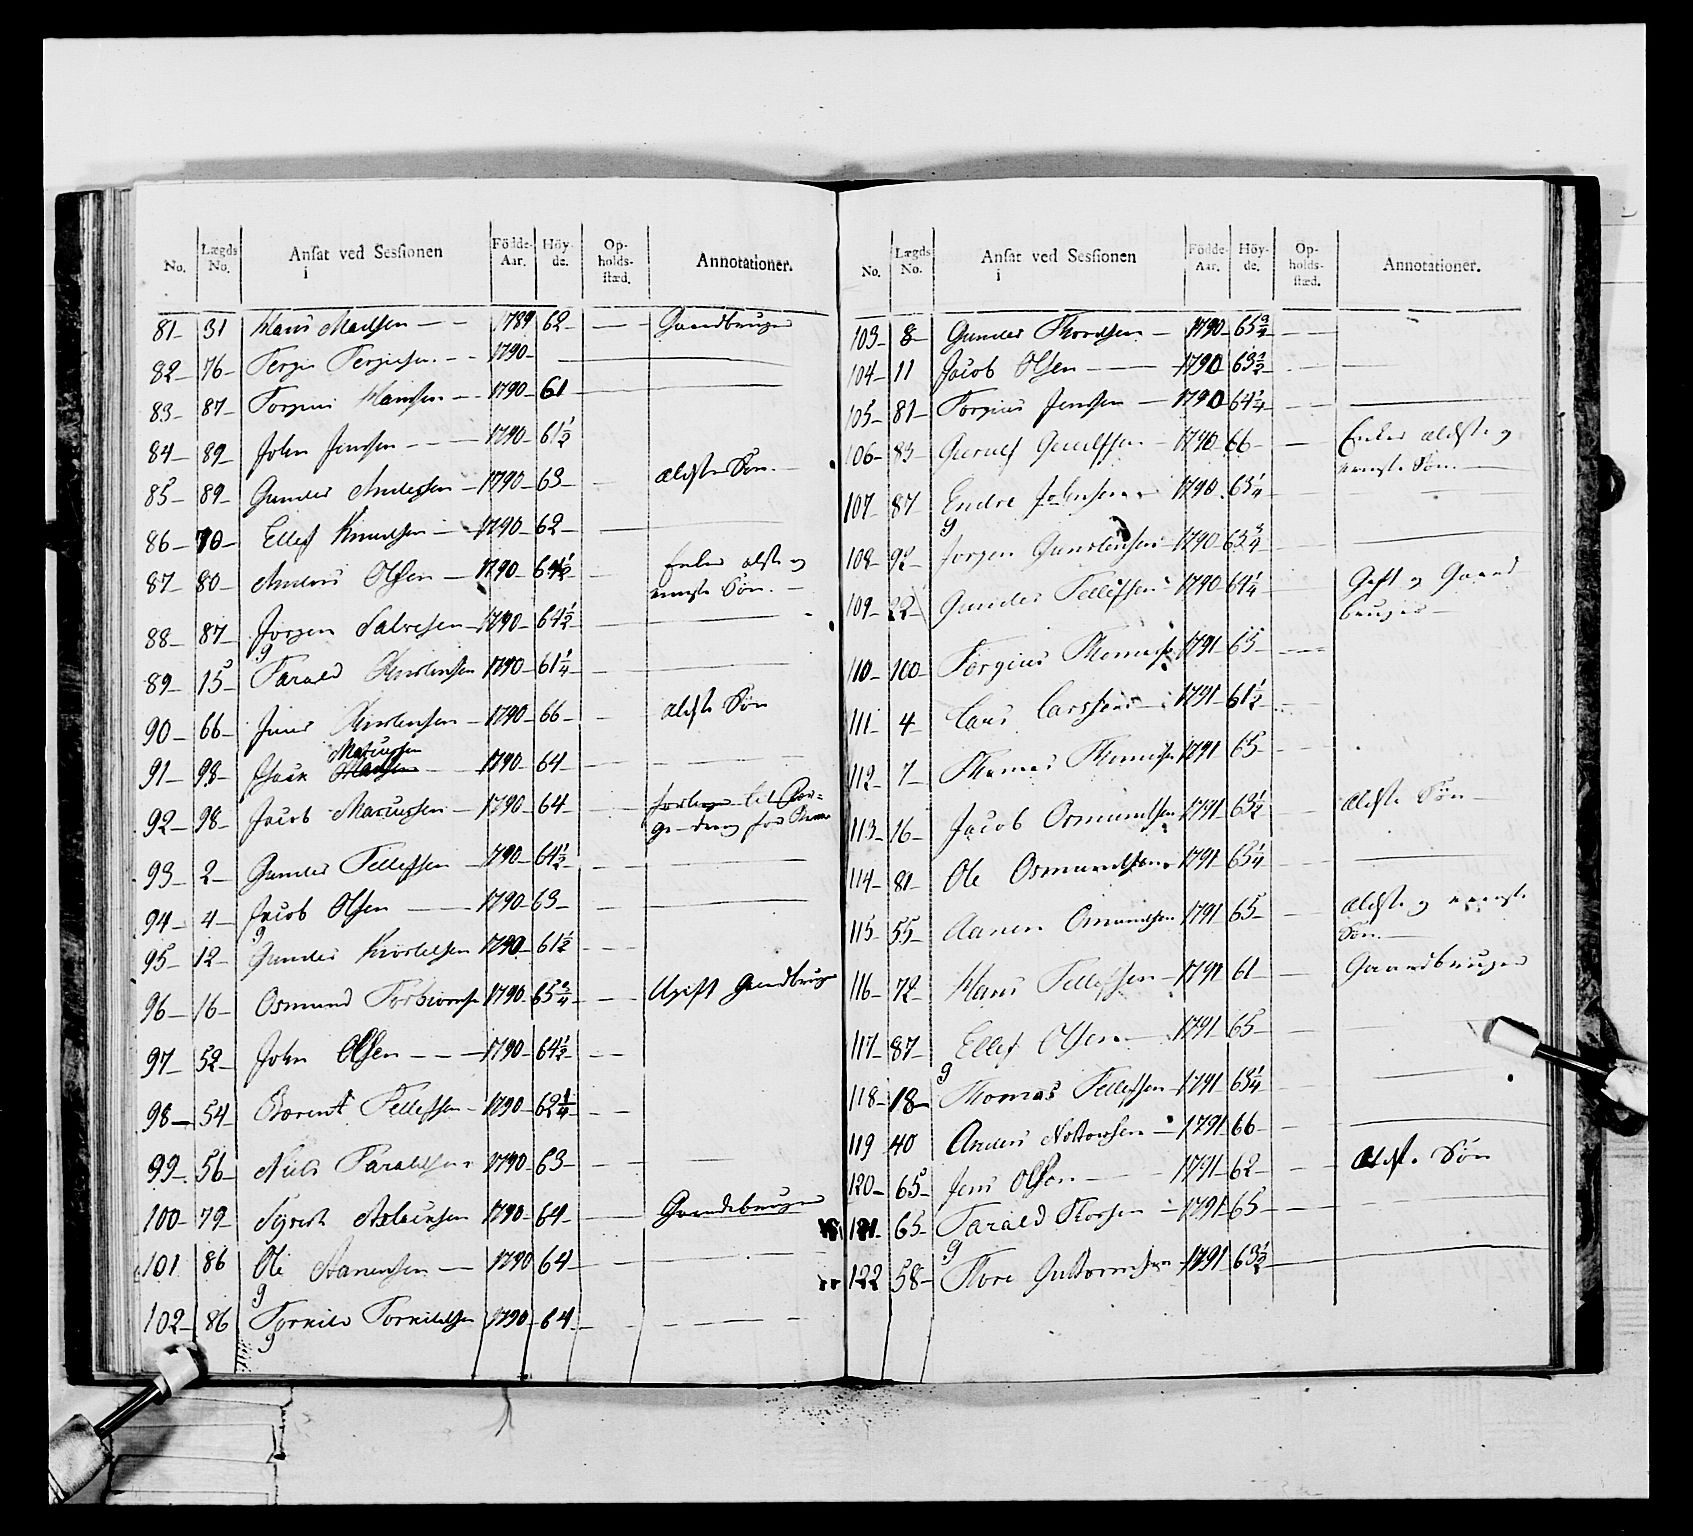 No. Lægds No. Ansat ved Sessionen i Födde-Aar. Höyde. Opholds-stæd. Annotationer.
81 31 Hans Madsen 1789 62 Gaardbruger
82 76 Tergius Tergiusen 1790
83 87 Torgius Hansen 1790 61
84 89 John Jenssen 1790 61½
85 89 Gunder Andersen 1790 63 ældste Søn
86 70 Ellef Knudsen 1790 62
87 80 Anders Olsen 1790 64½ Enkes ælste og
eneste Søn.
88 87 Jörgen Salvesen 1790 64½
89 15 Tarald Knudsen 1790 61¼
90 66 Jens 1790 66 ældste Søn
Marcussen
91 98 Isaak Madsen 1790 64
92 98 Jacob Marcussen 1790 64
93 2 Gunder Tellefsen 1790 64½
94 4 Jacob Olsen 1790 63
95 12 Gunder 1790 61½
96 16 Osmund Torbiornsen 1790 65¾ Ugift Gaardbruger
97 52 John Olsen 1790 64½
98 54 Berent Tellefsen 1790 62¼
99 56 Niels Taraldsen 1790 63
100 79 Syvert Aslaksen 1790 64 Gaardebruger
101 86 Ole Aanensen 1790 64
102 86 Torkild Torkildsen 1790 64
No. Lægds No. Ansat ved Sessionen i Födde-Aar. Höyde. Opholds-stæd. Annotationer.
103 8 Gunder Thordsen 1790 65¾
104 11 Jacob Olsen 1790 63½
105 81 Torgius Jenssen 1790 64¼
106 83 Gunulf Gunulfsen 1790 66 Enkes ældste og
eneste Søn.
107 87 Endre Johnsen 1790 63¼
108 92 Jörgen 1790 63¾
109 22 Gunder Tellefsen 1790 64¼ Gift og Gaard
bruger
110 100 Tergius Thomesen 1791 65
111 4 Lars Larssen 1791 61½
112 7 Thomas Thomesen 1791 65
113 16 Jacob Osmundsen 1791 63½ ældste Søn
114 81 Ole Osmundsen 1791 63¼
115 55 Aanen Omundsen 1791 65 ældste og eeneste
Søn
116 72 Hans Tellefsen 1791 61 Gaardbruger
117 87 Ellef Olsen 1791 65
118 18 Thomas Tellefsen 1791 63¼
119 40 Anders 1791 66
120 65 Jens Olsen 1791 62 ældste Søn
121 65 Tarald Thorsen 1791 65
122 58 Thore Guttormsen 1791 63½